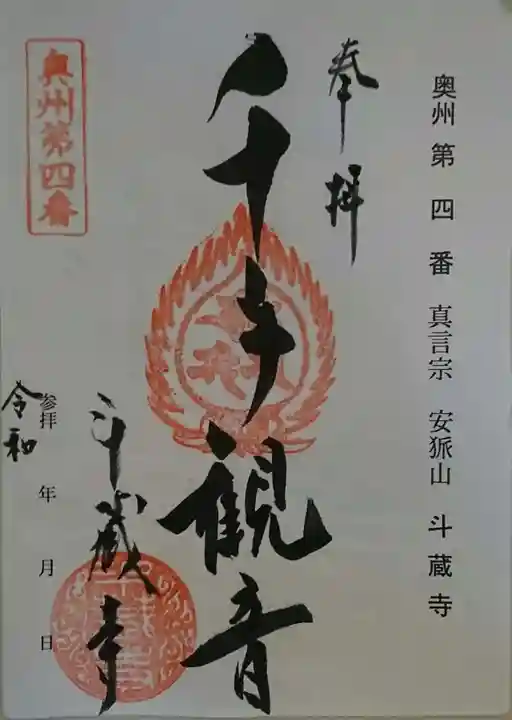 奥州 第 四 番 真言宗 安狐山 斗蔵寺
奉拝
千手観音
斗蔵寺
参拝 年 月 日
令和
奥州第四番